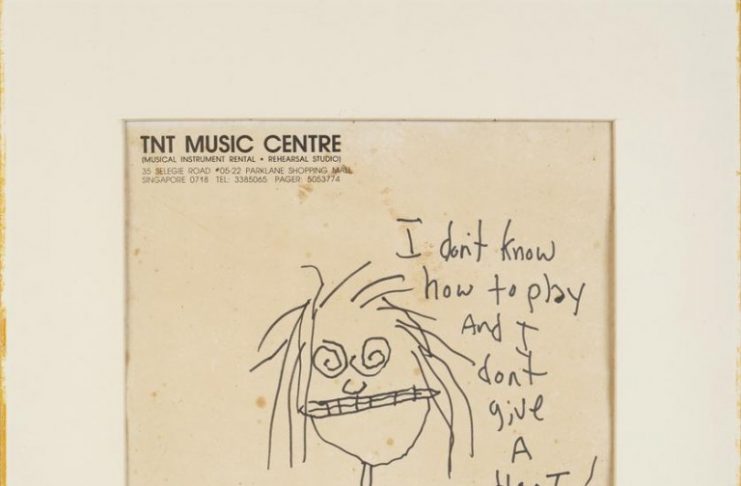 TNT MUSIC CENTRE
(MUSICAL INSTRUMENT RENTAL • REHEARSAL STUDIO)
35 SELEGIE ROAD #05-22 PARKLANE SHOPPING MALL
SINGAPORE 0718 TEL: 3385065 PAGER: 5053774
I don't know
how to play
And I
don't
give
A